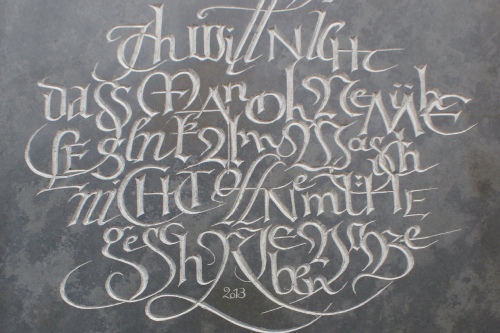 Ich will nicht
dass man ohne Mühe
lesen kann was ich
nicht ohne Mühe
geschrieben habe
2013